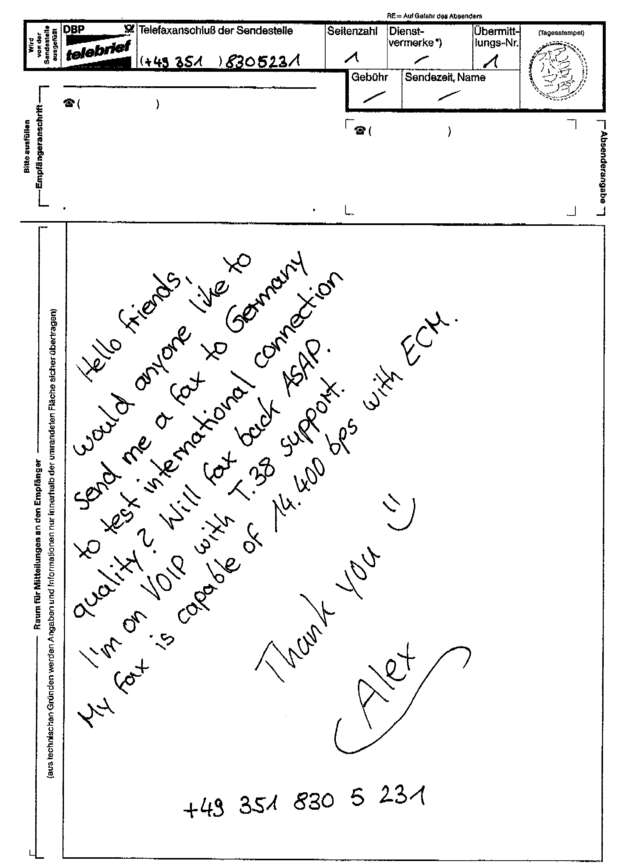 RE = Auf Gefahr des Absenders
Wird von der Sendestelle ausgefüllt
DBP
telebrief
Telefaxanschluß der Sendestelle
(+49 351 ) 8305231
Seitenzahl
1
Dienst-
vermerke*)
—
Übermitt-
lungs-Nr.
1
(Tagesstempel)
Gebühr
—
Sendezeit, Name
—
Bitte ausfüllen
Empfängeranschrift
☎ ( )
☎ ( )
Absenderangabe
Raum für Mitteilungen an den Empfänger
(aus technischen Gründen werden Angaben und Informationen nur innerhalb der umrandeten Fläche sicher übertragen)
Hello friends,
would anyone like to
send me a fax to Germany
to test international connection
quality? Will fax back ASAP.
I'm on VOIP with T.38 support.
My fax is capable of 14.400 bps with ECM.
Thank you :)
Alex
+49 351 830 5 231